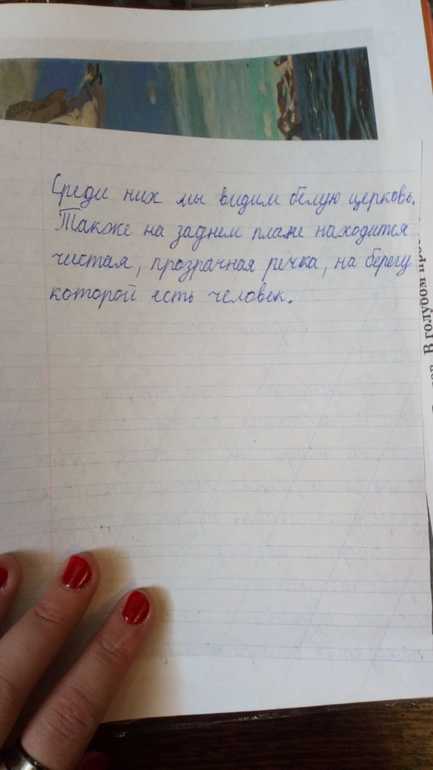 Среди них мы видим белую церковь.
Также на заднем плане находится
чистая, прозрачная речка, на берегу
которой есть человек.
В голубом